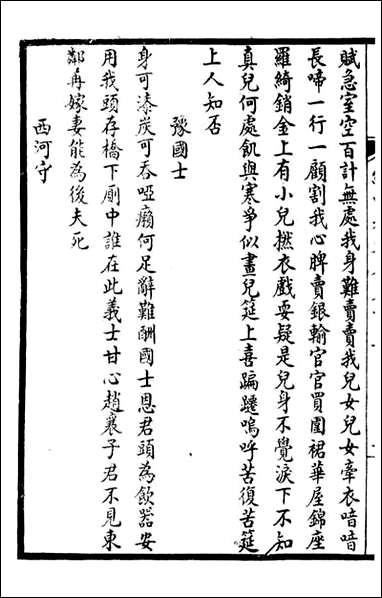 賦急室空百計無處我身難賣賣我兒女兒女牽衣喑喑
長啼一行一顧割我心脾賣銀輸官官買圍裙華屋錦座
羅綺銷金上有小兒撚衣戲耍疑是兒身不覺淚下不知
真兒何處飢與寒爭似畫兒筵上喜蹁躚嗚呼苦復苦筵
上人知否
豫國士
身可漆炭可吞啞癩何足辭難酬國士恩君頭為飲器安
用我頭存橋下厠中誰在此義士甘心趙襄子君不見東
鄰再嫁妻能為後夫死
西河守